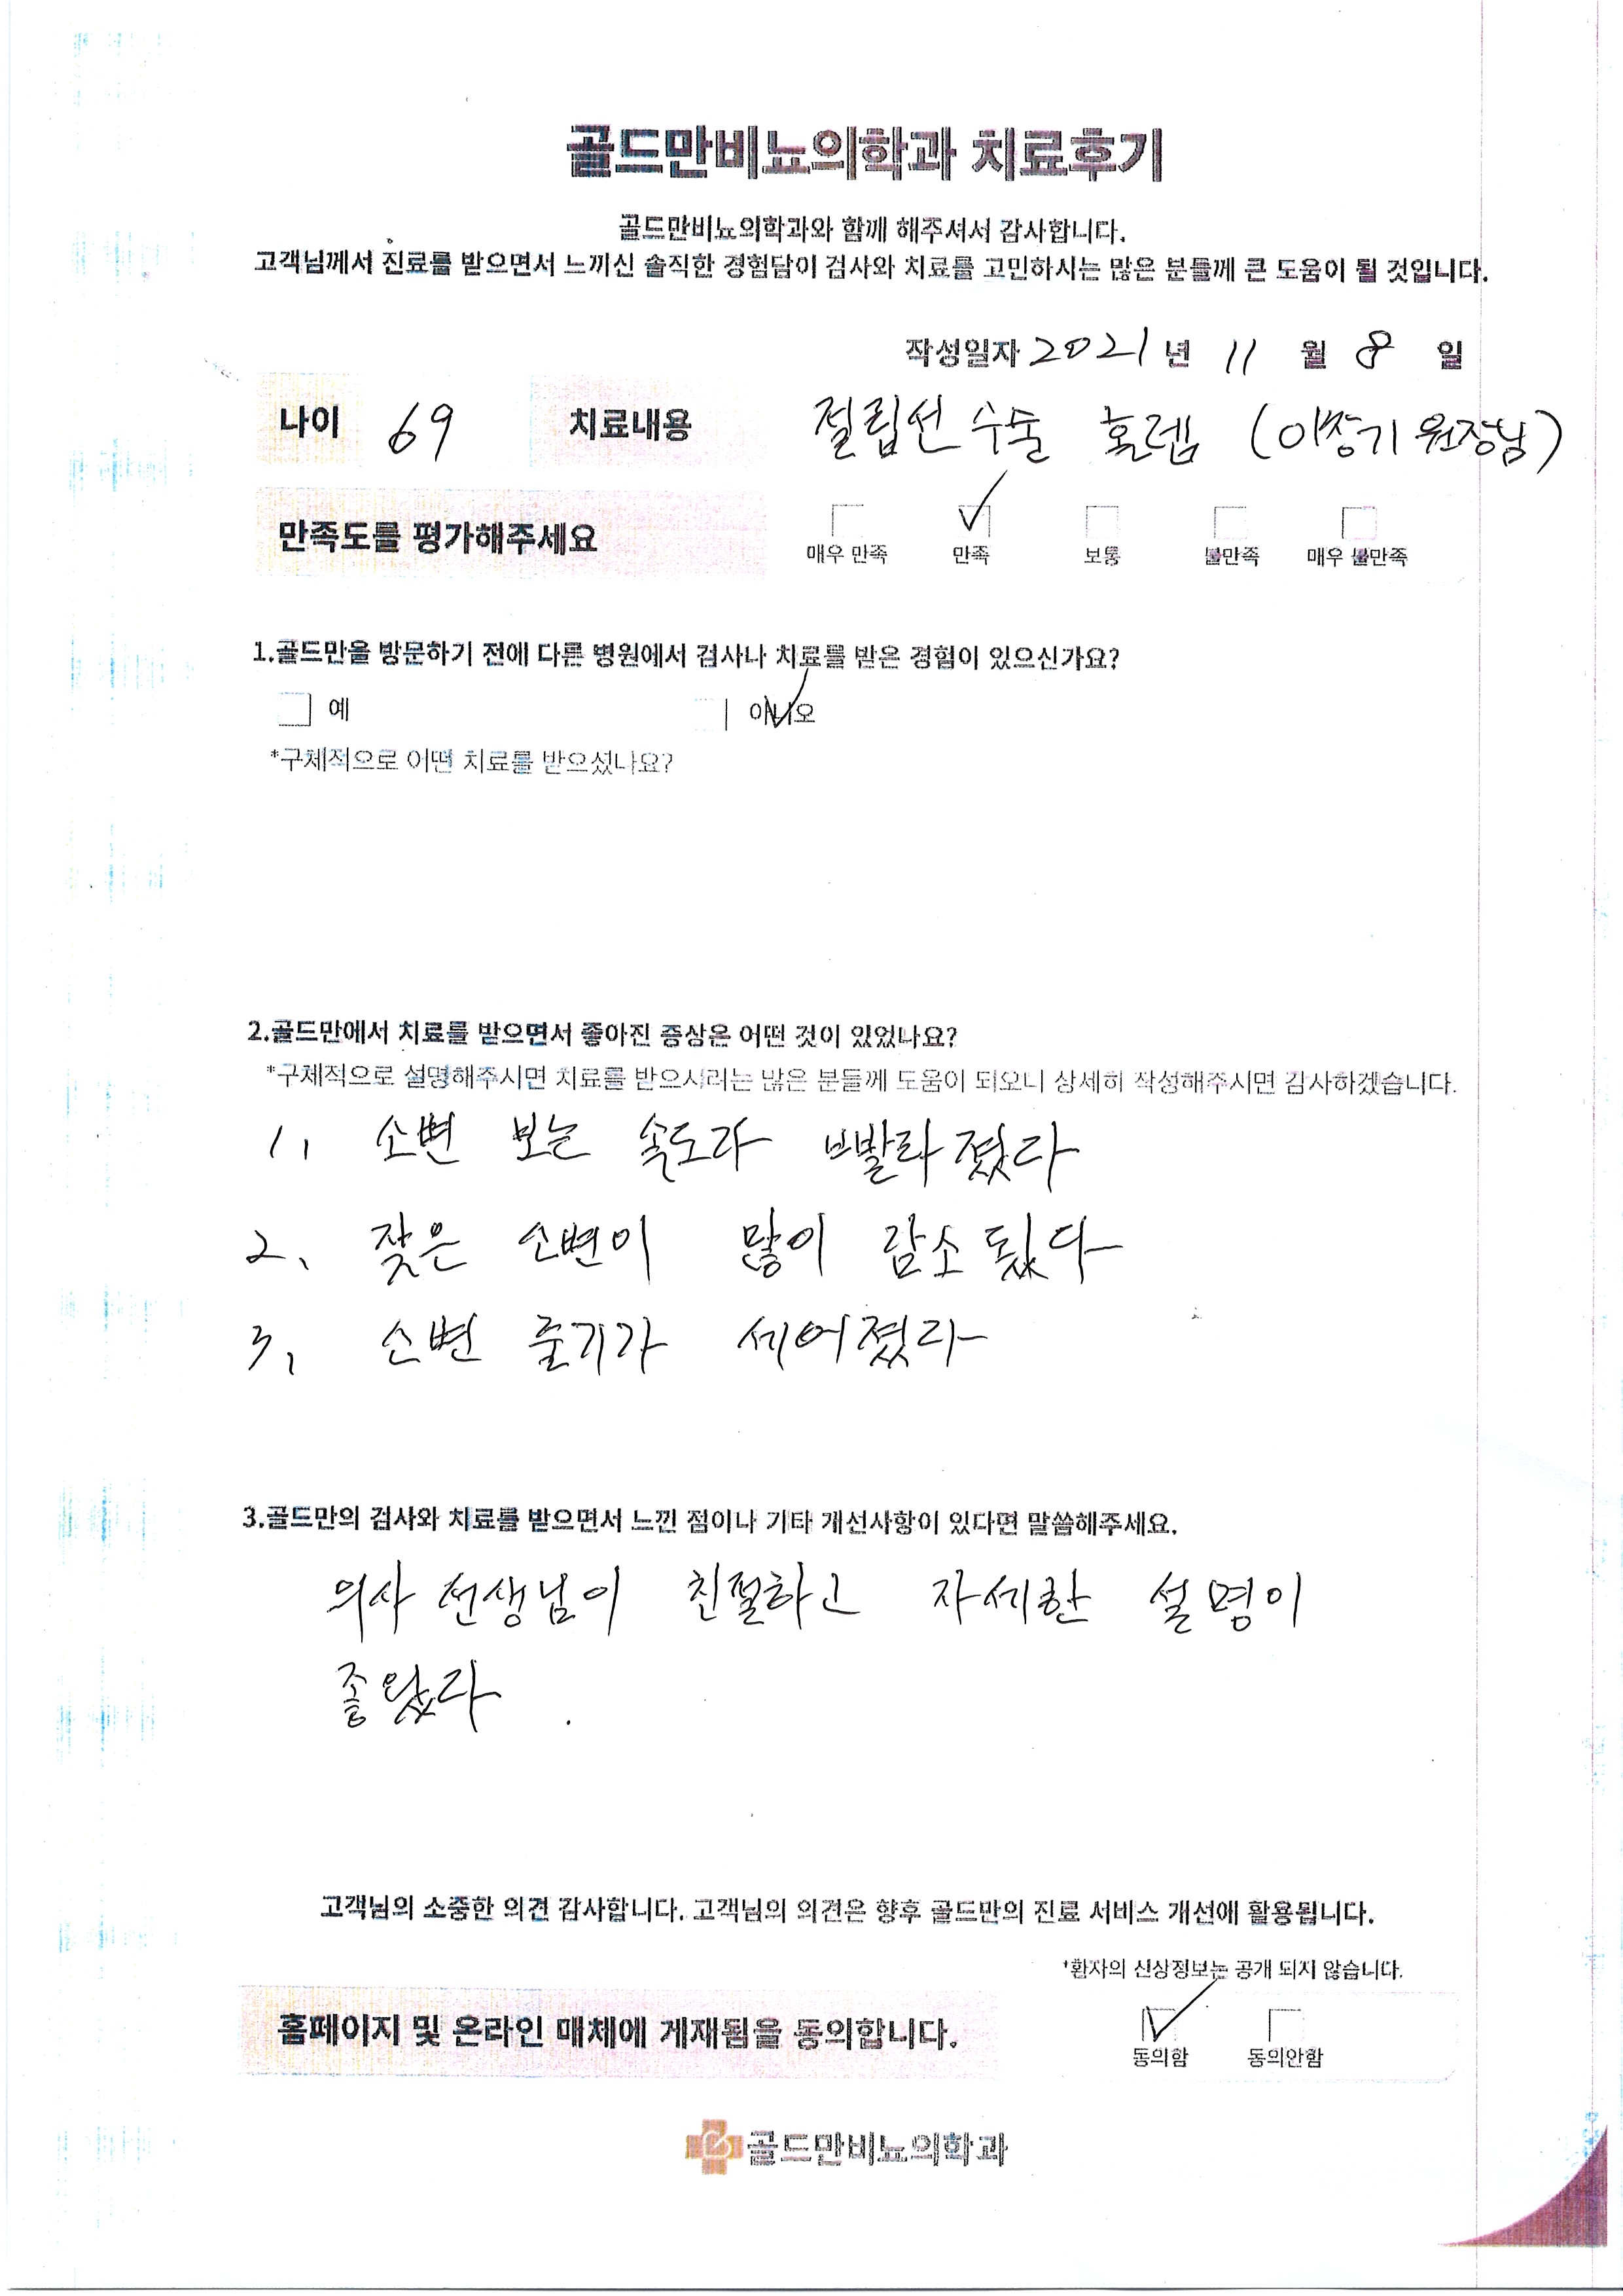 골드만비뇨의학과 치료후기
골드만비뇨의학과와 함께 해주셔서 감사합니다.
고객님께서 진료를 받으면서 느끼신 솔직한 경험담이 검사와 치료를 고민하시는 많은 분들께 큰 도움이 될 것입니다.
작성일자 2021 년 11 월 8 일
나이 69 치료내용 절립선 수술 홀렙 (이창기 원장님)
만족도를 평가해주세요
매우 만족 만족 보통 불만족 매우 불만족
1.골드만을 방문하기 전에 다른 병원에서 검사나 치료를 받은 경험이 있으신가요?
예 아니오
*구체적으로 어떤 치료를 받으셨나요?
2.골드만에서 치료를 받으면서 좋아진 증상은 어떤 것이 있었나요?
*구체적으로 설명해주시면 치료를 받으시려는 많은 분들께 도움이 되오니 상세히 작성해주시면 감사하겠습니다.
1, 소변 보는 속도가 빨라졌다
2、 잦은 소변이 많이 감소됬다
3, 소변 줄기가 세어졌다
3.골드만의 검사와 치료를 받으면서 느낀 점이나 기타 개선사항이 있다면 말씀해주세요.
의사 선생님이 친절하고 자세한 설명이
좋왔다.
고객님의 소중한 의견 감사합니다. 고객님의 의견은 향후 골드만의 진료 서비스 개선에 활용됩니다.
*환자의 신상정보는 공개 되지 않습니다.
홈페이지 및 온라인 매체에 게재됨을 동의합니다.
동의함 동의안함
골드만비뇨의학과